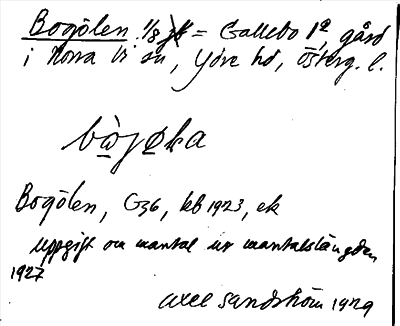 Bogölen 1/8 = Gallebo 1º, gård
i Norra Vi sn, Ydre hd, Österg. l.
Bogölen, G36, kb 1923, ek
Uppgift om mantal ur mantalslängden
1927
Axel Sandström 1929